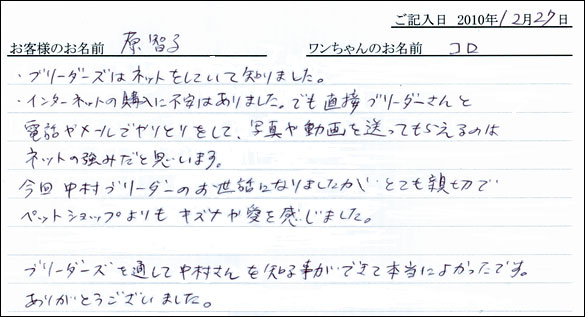 ご記入日 2010年12月27日
お客様のお名前 原智子 ワンちゃんのお名前 コロ
・ブリーダーズはネットをしていて知りました。
・インターネットの購入に不安はありました。でも直接ブリーダーさんと
電話やメールでやりとりをして、写真や動画を送ってもらえるのは
ネットの強みだと思います。
今回中村ブリーダーのお世話になりましたが とても親切で
ペットショップよりも キズナや愛を感じました。
ブリーダーズを通して中村さんを知る事ができて本当によかったです。
ありがとうございました。